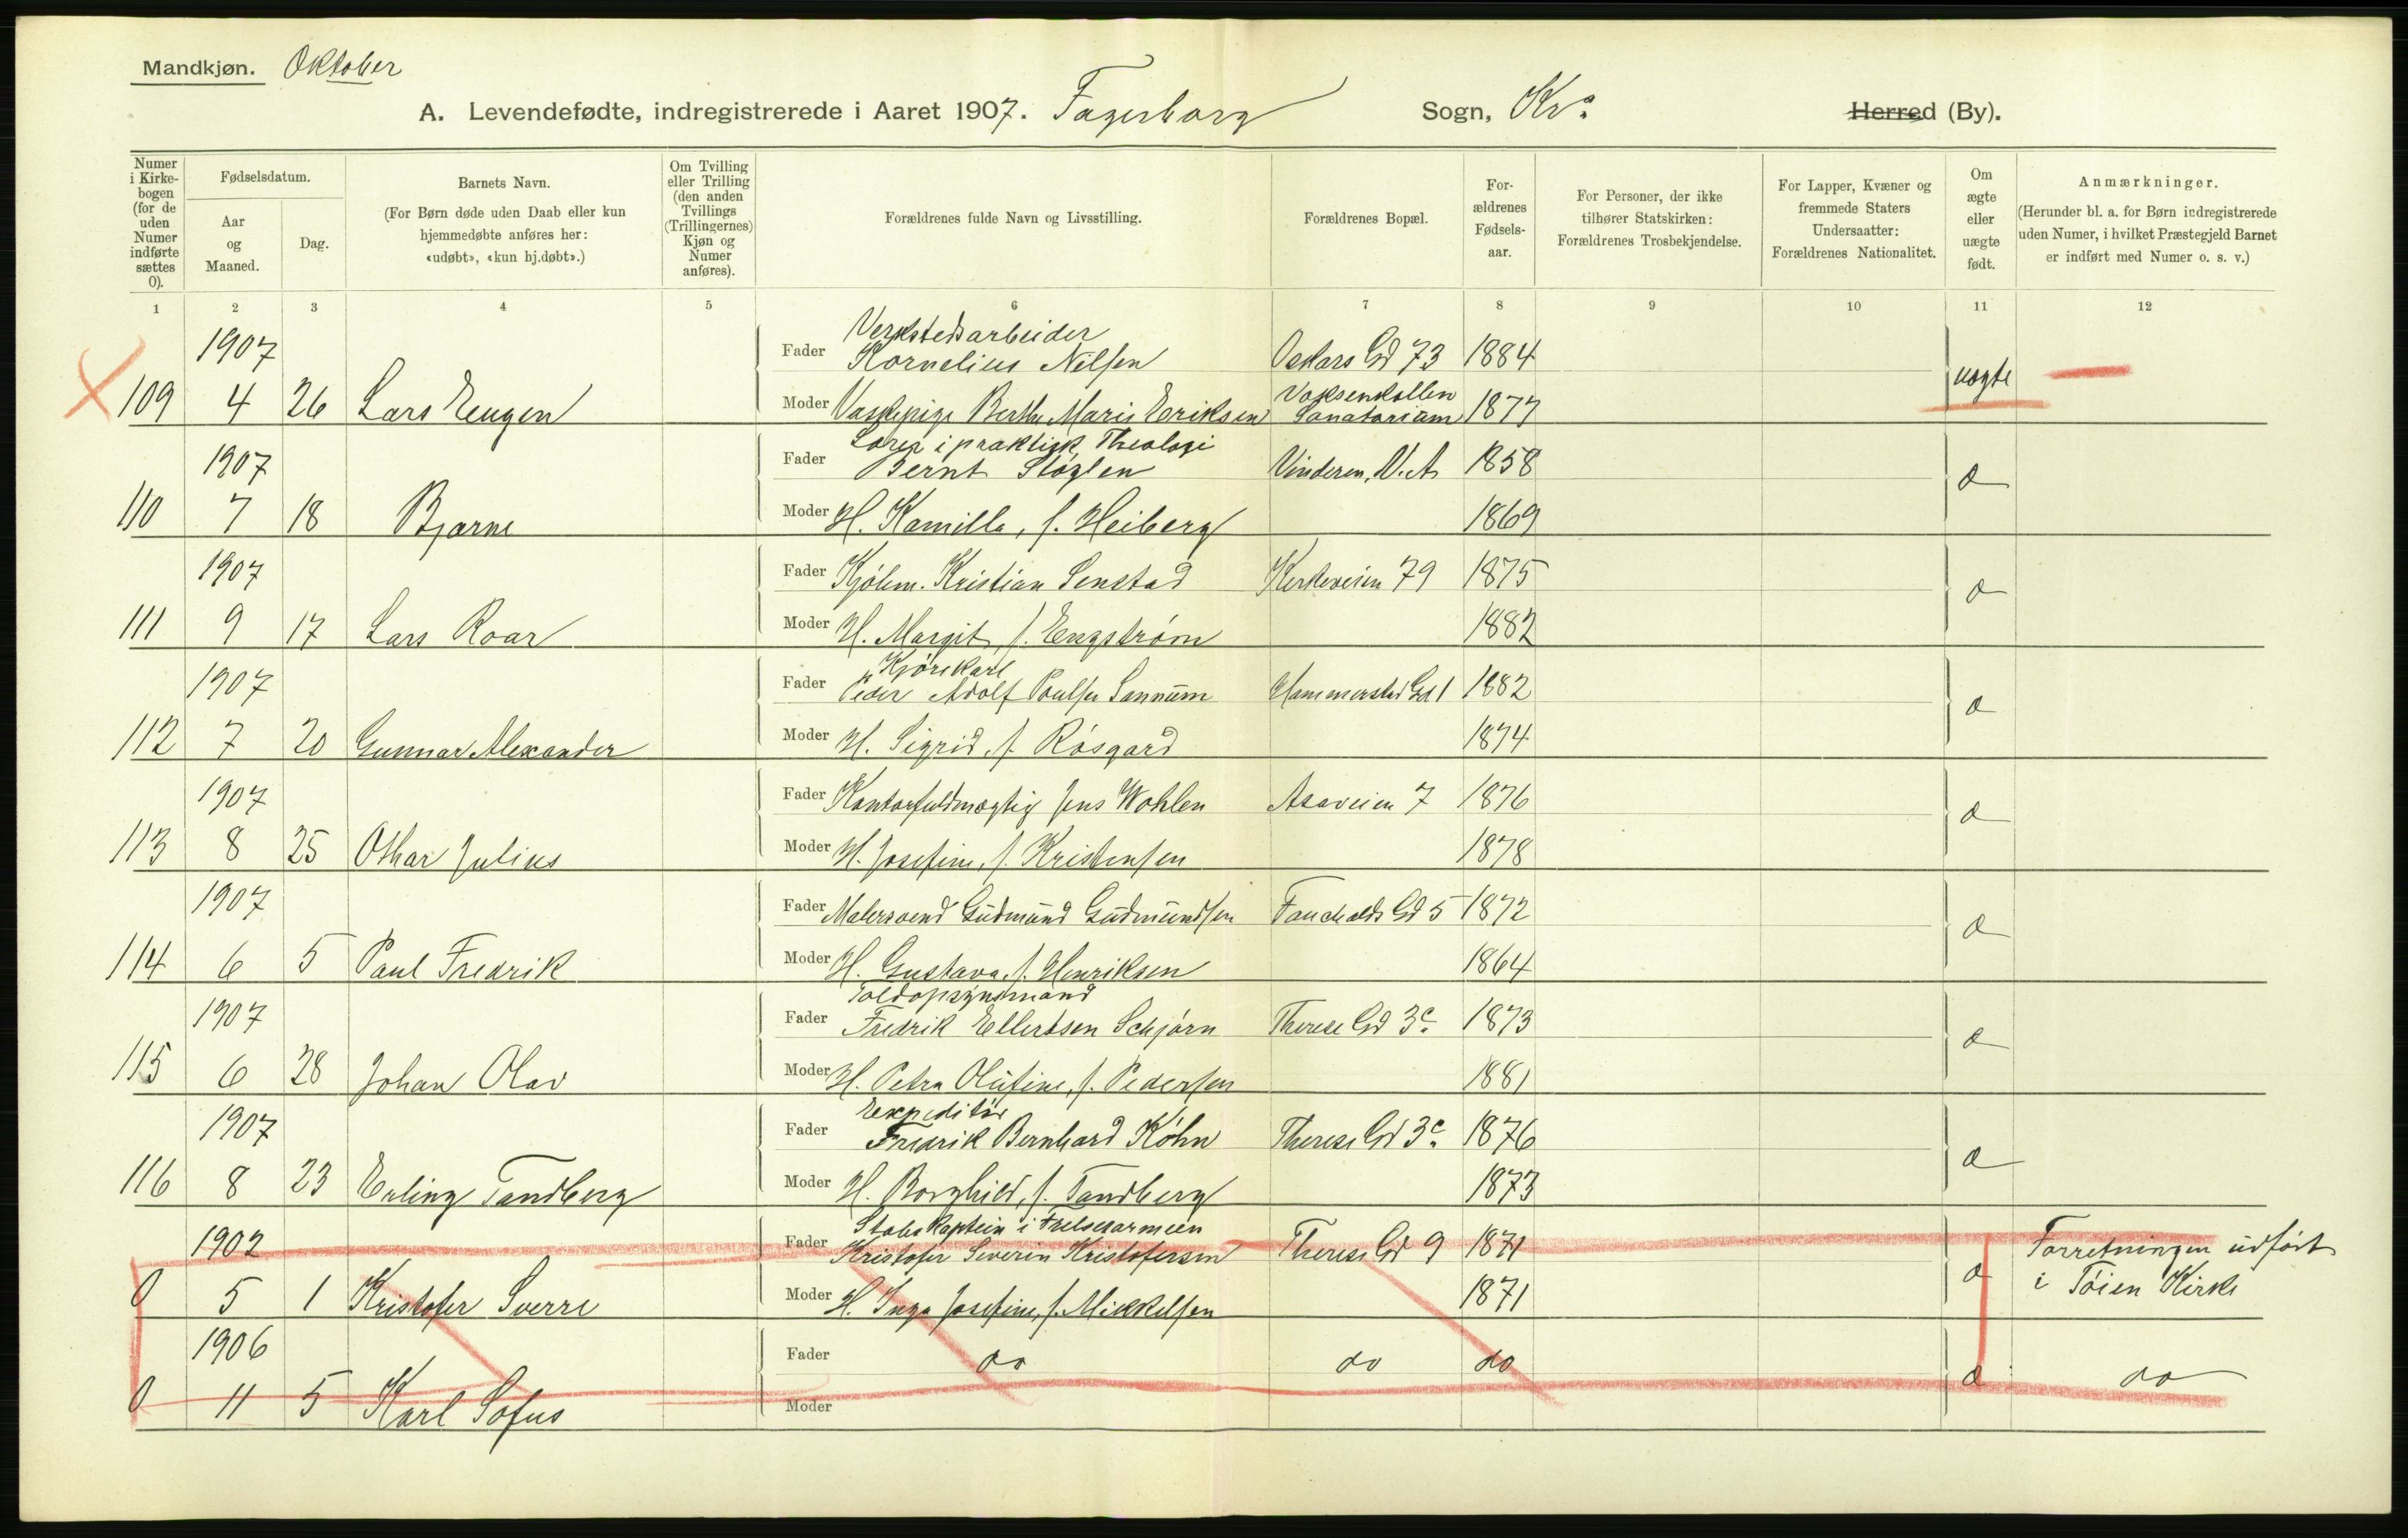 Mandkjøn. Oktober
A. Levendefødte, indregistrerede i Aaret 1907. Fagerborg Sogn, Kra. Herred (By).
Numer i Kirkebogen (for de uden Numer indførte sættes 0).
Fødselsdatum.
Aar og Maaned.
Dag.
Barnets Navn.
(For Børn døde uden Daab eller kun hjemmedøbte anføres her: «udøbt», «kun hj.døbt».)
Om Tvilling eller Trilling (den anden Tvillings (Trillingernes) Kjøn og Numer anføres).
Forældrenes fulde Navn og Livsstilling.
Forældrenes Bopæl.
Forældrenes Fødselsaar.
For Personer, der ikke tilhører Statskirken: Forældrenes Trosbekjendelse.
For Lapper, Kvæner og fremmede Staters Undersaatter: Forældrenes Nationalitet.
Om ægte eller uægte født.
Anmærkninger.
(Herunder bl. a. for Børn indregistrerede uden Numer, i hvilket Præstegjeld Barnet er indført med Numer o. s. v.)
1 2 3 4 5 6 7 8 9 10 11 12
Verkstedsarbeider
1907 Fader Kornelius Nilsen Oskars Gd 73 1884 uægte
Voksenkollen
109 4 26 Lars Eugen Moder Vaskepige Berthe Marie Eriksen Sanatorium 1877
Lærer i praktisk Theologi
1907 Fader Bernt Støylen Vinderen, V. A 1858 æ
110 7 18 Bjarne Moder H. Kamilla, f. Heiberg 1869
1907 Fader Kjøbm. Kristian Senstad Kirkeveien 79 1875 æ
111 9 17 Lars Roar Moder H. Margit, f. Engstrøm 1882
Kjørekarl
1907 Fader Peder Adolf Poulsen Sannum Hammerstad Gd 1 1882 æ
112 7 20 Gunnar Alexander Moder H. Sigrid, f. Røsgard 1874
1907 Fader Kontorfuldmægtig Jens Wohlen Asaveien 7 1876 æ
113 8 25 Othar Julius Moder H. Josefine, f. Kristensen 1878
1907 Fader Malersvend Gudmund Gudmundsen Fauchalds Gd 5 1872 æ
114 6 5 Paul Fredrik Moder H. Gustava, f. Henriksen 1864
Toldopsynsmand
1907 Fader Fredrik Ellertsen Schjørn Therese Gd 3c. 1873 æ
115 6 28 Johan Olav Moder H. Petra Olufine, f. Pedersen 1881
Expeditør
1907 Fader Fredrik Bernhard Køhn Therese Gd 3c. 1876 æ
116 8 23 Erling Tandberg Moder H. Borghild, f. Tandberg 1873
Stabskaptein i Frelsesarmeen
1902 Fader Kristofer Severin Kristofersen Therese Gd 9 1871 æ Forretningen udført
0 5 1 Kristofer Sverre Moder H. Inga Josefine, f. Mikkelsen 1871 i Tøien Kirke
1906 Fader do do do æ do
0 11 5 Karl Sofus Moder